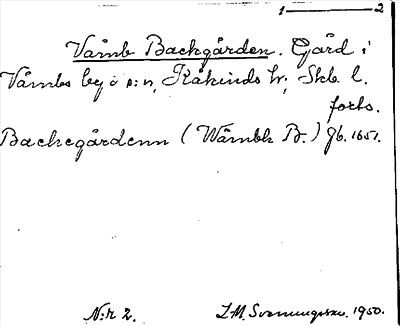 1 — 2
Våmb Backgården. Gård i
Våmbs by o s:n, Kåkinds hr, Skb. l.
forts.
Backegårdenn (Wåmbh B.) Jb. 1651.
N:r 2. I.M. Svenungsson. 1950.